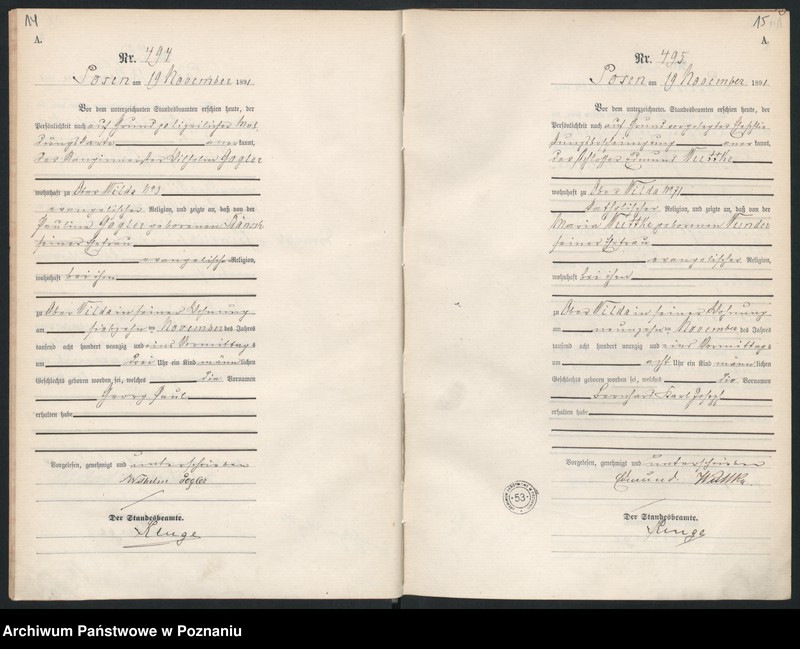 14
A.
Nr. 494.
Posen am 19 November 1891
Vor dem unterzeichneten Standesbeamten erschien heute, der
Persönlichkeit nach auf Grund polizeilicher Mel
dungskarte anerkannt,
der Rangirmeister Wilhelm Gogler
wohnhaft zu Ober Wilda No
evangelischer Religion, und zeigte an, daß von der
Pauline Gogler geborenen
seiner Ehefrau
evangelischer Religion,
wohnhaft bei ihm
zu Ober Wilda in seiner Wohnung
am siebzehn ten November des Jahres
tausend acht hundert neunzig und eins Vormittags
um drei Uhr ein Kind männlichen
Geschlechts geboren worden sei, welches die Vornamen
Georg Paul
erhalten habe
Vorgelesen, genehmigt und unterschrieben
Wilhelm Gogler
Der Standesbeamte.
15
A.
Nr. 495.
Posen am 19 November 1891
Vor dem unterzeichneten Standesbeamten erschien heute, der
Persönlichkeit nach auf Grund vorgelegter Eheschlie
ßungsbescheinigung anerkannt,
der Schlosser Edmund Wuttke
wohnhaft zu Ober Wilda No 71
katholischer Religion, und zeigte an, daß von der
Maria Wuttke geborenen Wunder
seiner Ehefrau
evangelischer Religion,
wohnhaft bei ihm
zu Ober Wilda in seiner Wohnung
am neunzehn ten November des Jahres
tausend acht hundert neunzig und eins Vormittags
um acht Uhr ein Kind männlichen
Geschlechts geboren worden sei, welches die Vornamen
Bernhard Karl Josef
erhalten habe
Vorgelesen, genehmigt und unterschrieben
Edmund Wuttke
53
Der Standesbeamte.
Archiwum Państwowe w Poznaniu